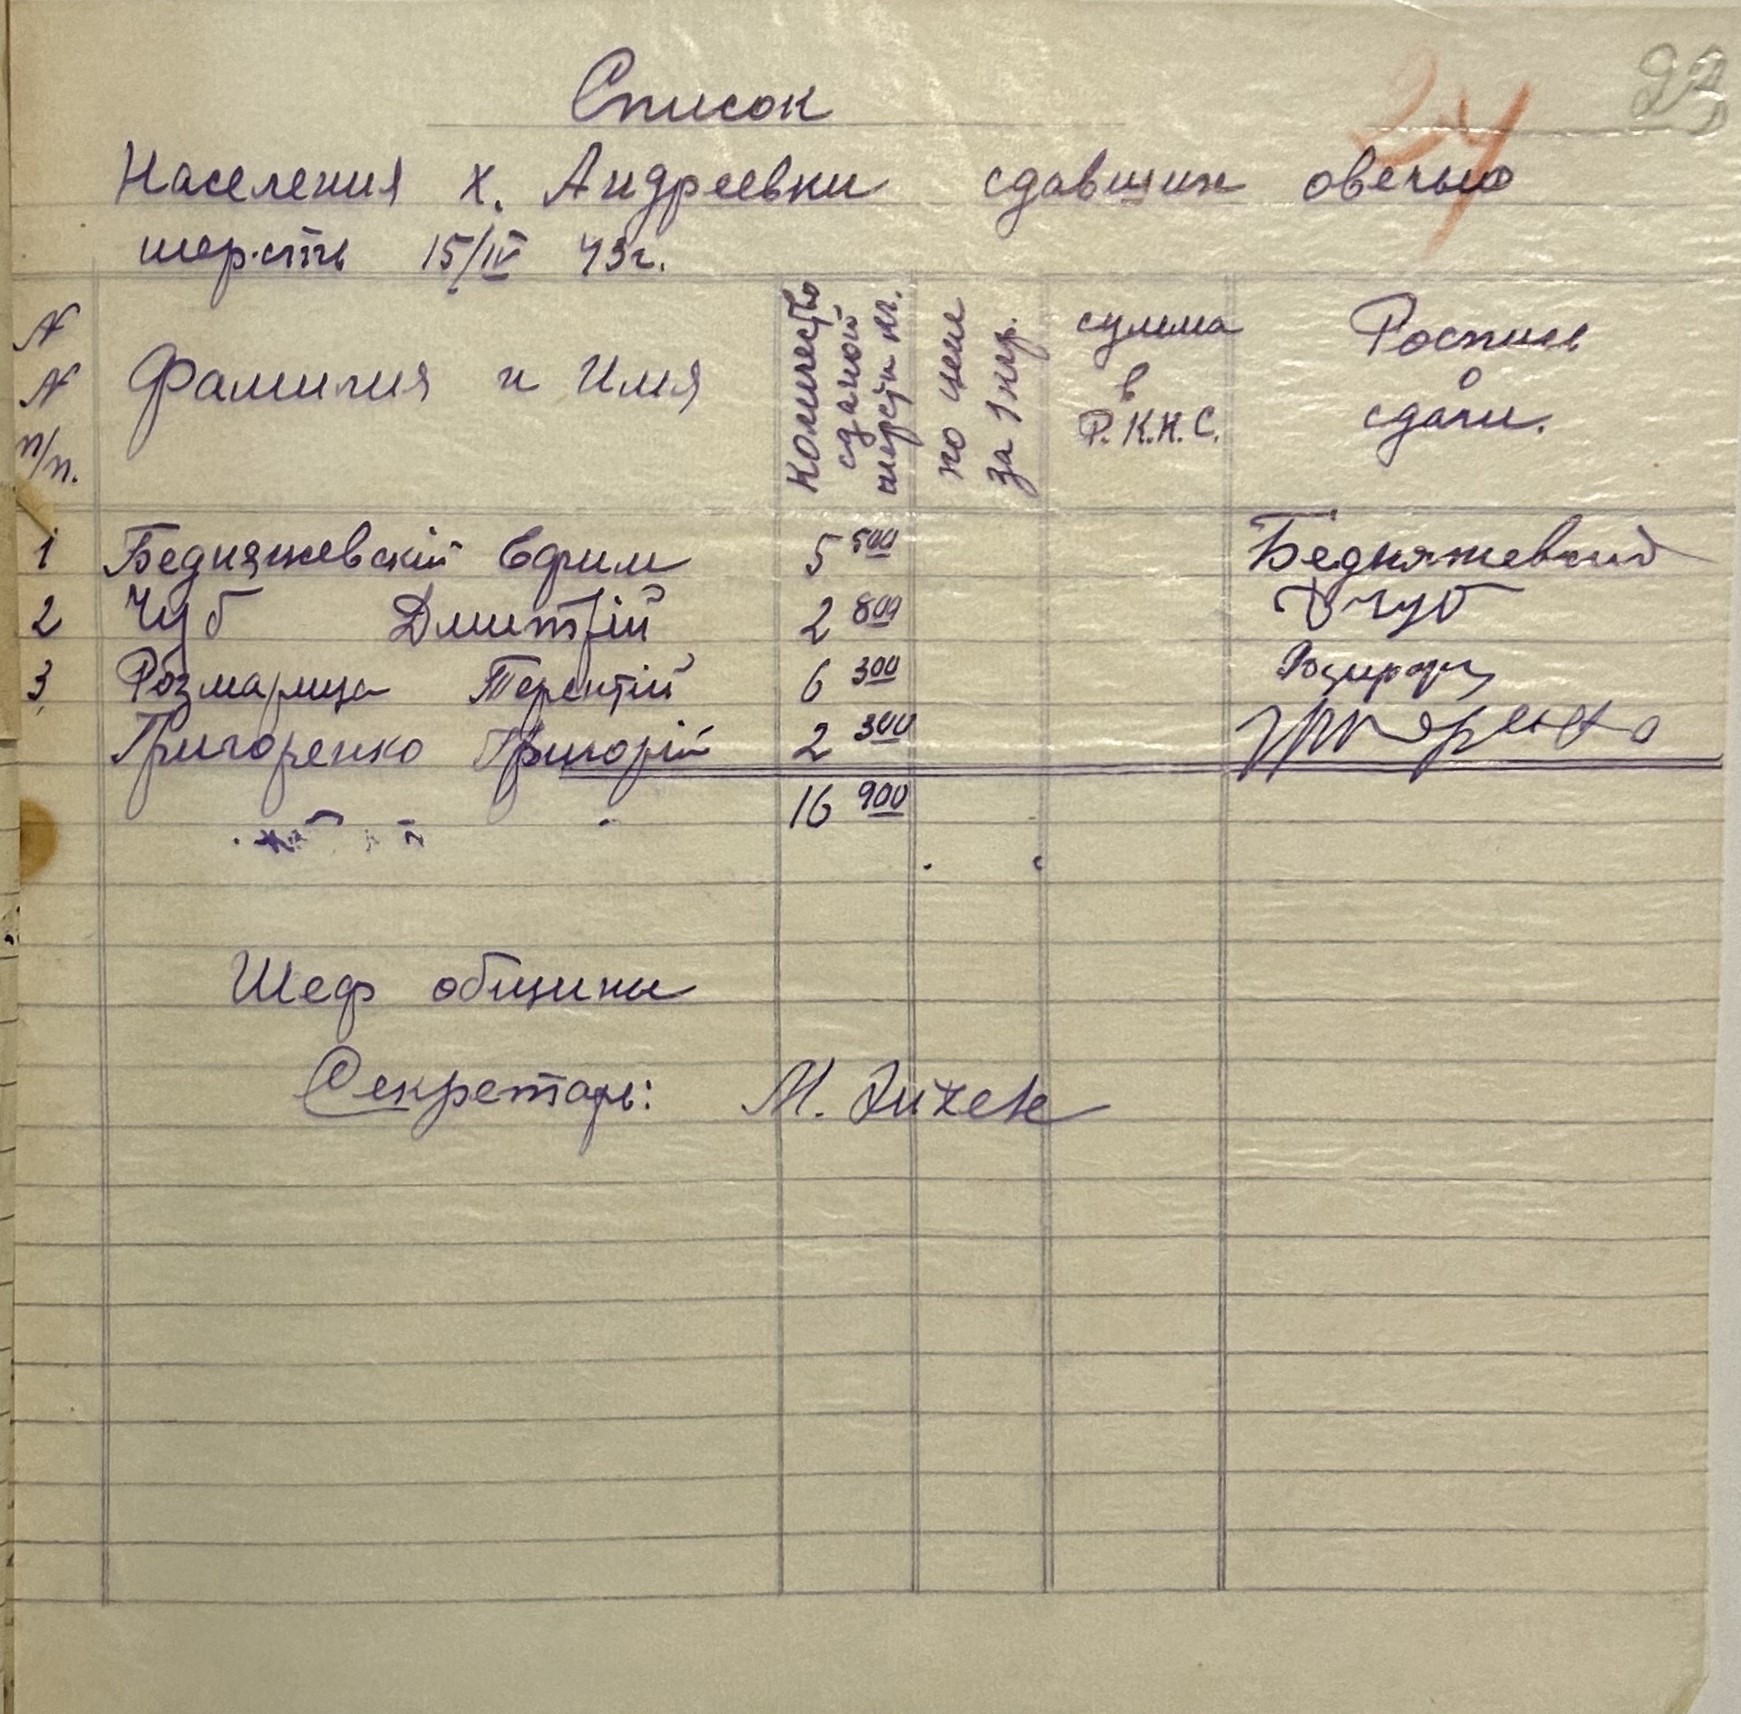 23
24
Список
Населения х. Андреевки сдавших овечью
шерсть 15/IV 43г.
N N п/п. Фамилия и Имя Количество сданной шерсти кг. по цене за 1 кгр. сумма в Р.К.К.С. Роспись о сдачи.
1 Бедняжевскій Ефим 5 500 Бедняжевский
2 Чуб Дмитрій 2 800 Д Чуб
3 Розмарица Терентій 6 300
Григоренко Григорій 2 300 Григоренко
16 900
Шеф общины
Секретарь: М.